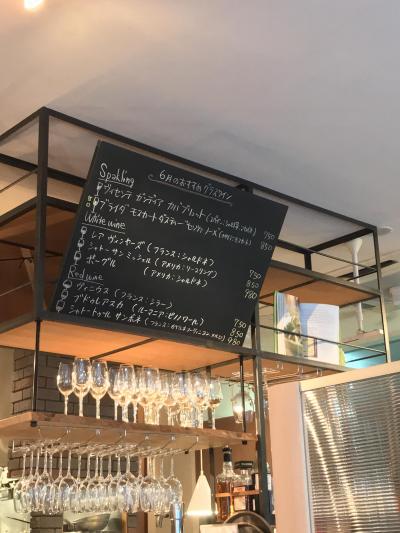 6月のおすすめグラスワイン
Spakling
ヴィセンテ ガンディア カバ ブルット 750
ブライダ モスカート ダスティ 850
White wine
レア ヴィンヤーズ (フランス:シャルドネ) 750
シャトー サン ミッシェル (アメリカ:リースリング) 850
ボーグル (アメリカ:シャルドネ) 980
Red wine
ヴィニウス (フランス:シラー) 750
ブドゥレアスカ (ルーマニア:ピノノワール) 850
シャトー トゥール サン ボネ 980